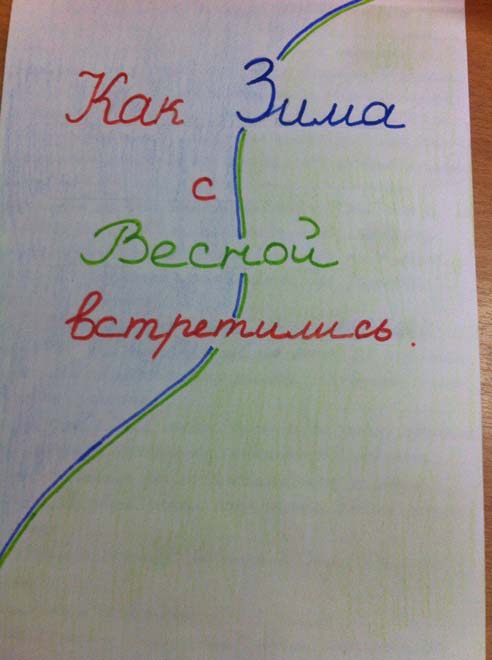 Как Зима
с
Весной
встретились.